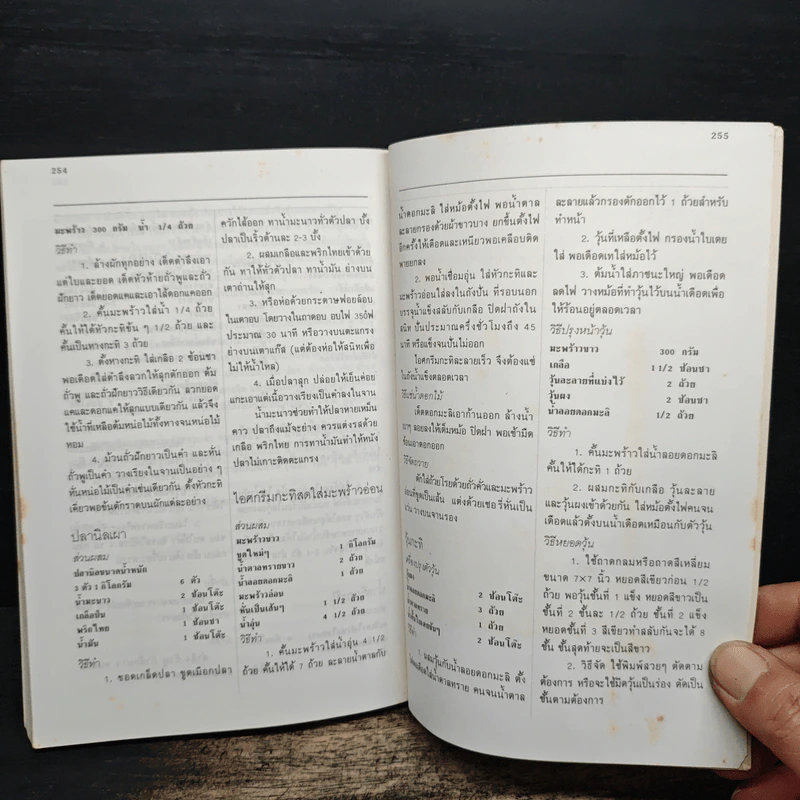 254
มะพร้าว 300 กรัม น้ำ 1/4 ถ้วย
วิธีทำ
1. ล้างผักทุกอย่าง เด็ดตำลึงเอา
แต่ใบและยอด เด็ดหัวท้ายถั่วพูและถั่ว
ฝักยาว เด็ดยอดแคและเอาไส้ดอกแคออก
2. คั้นมะพร้าวใส่น้ำ 1/4 ถ้วย
คั้นให้ได้หัวกะทิข้น ๆ 1/2 ถ้วย และ
คั้นเป็นหางกะทิ 3 ถ้วย
3. ตั้งหางกะทิ ใส่เกลือ 2 ช้อนชา
พอเดือดใส่ตำลึงลวกให้สุกตักออก ต้ม
ถั่วพู และถั่วฝักยาววิธีเดียวกัน ลวกยอด
แคและดอกแคให้สุกแบบเดียวกัน แล้วจึง
ใช้น้ำที่เหลือต้มหน่อไม้ทั้งหางจนหน่อไม้
หอม
4. ม้วนถั่วฝักยาวเป็นคำ และหั่น
ถั่วพูเป็นคำ วางเรียงในจานเป็นอย่าง ๆ
หั่นหน่อไม้เป็นคำเช่นเดียวกัน ตั้งหัวกะทิ
เคี่ยวพอข้นตักราดบนผักแต่ละอย่าง
ปลานิลเผา
ส่วนผสม
ปลานิลขนาดน้ำหนัก
3 ตัว 1 กิโลกรัม 6 ตัว
น้ำมะนาว 2 ช้อนโต๊ะ
เกลือป่น 1 ช้อนโต๊ะ
พริกไทย 1 ช้อนชา
น้ำมัน 1 ช้อนโต๊ะ
วิธีทำ
1. ขอดเกล็ดปลา ขูดเมือกปลา
ควักไส้ออก ทาน้ำมะนาวทั่วตัวปลา บั้ง
ปลาเป็นริ้วด้านละ 2-3 บั้ง
2. ผสมเกลือและพริกไทยเข้าด้วย
กัน ทาให้ทั่วตัวปลา ทาน้ำมัน ย่างบน
เตาถ่านให้สุก
3. หรือห่อด้วยกระดาษฟอยล์อบ
ในเตาอบ โดยวางในถาดอบ อบไฟ 350ฟ
ประมาณ 30 นาที หรือวางบนตะแกรง
ย่างบนเตาแก๊ส (แต่ต้องห่อให้สนิทเพื่อ
ไม่ให้น้ำไหล)
4. เมื่อปลาสุก ปล่อยให้เย็นค่อย
แกะเอาแต่เนื้อวางเรียงเป็นคำลงในจาน
น้ำมะนาวช่วยทำให้ปลาหายเหม็น
คาว ปลาถึงแม้จะย่าง ควรแต่งรสด้วย
เกลือ พริกไทย การทาน้ำมันทำให้หนัง
ปลาไม่เกาะติดตะแกรง
ไอศกรีมกะทิสดใส่มะพร้าวอ่อน
ส่วนผสม
มะพร้าวขาว
ขูดใหม่ๆ 1 กิโลกรัม
น้ำตาลทรายขาว 2 ถ้วย
น้ำลอยดอกมะลิ 1 ถ้วย
มะพร้าวอ่อน
หั่นเป็นเส้นๆ 1 1/2 ถ้วย
น้ำอุ่น 4 1/2 ถ้วย
วิธีทำ
1. คั้นมะพร้าวใส่น้ำอุ่น 4 1/2
ถ้วย คั้นให้ได้ 7 ถ้วย ละลายน้ำตาลกับ
255
น้ำดอกมะลิ ใส่หม้อตั้งไฟ พอน้ำตาล
ละลายกรองด้วยผ้าขาวบาง ยกขึ้นตั้งไฟ
อีกครั้งให้เดือดและเหนียวพอเคลือบติด
พายยกลง
2. พอน้ำเชื่อมอุ่น ใส่หัวกะทิและ
มะพร้าวอ่อนใส่ลงในถังปั่น ที่รอบนอก
บรรจุน้ำแข็งสลับกับเกลือ ปิดฝาถังใน
สนิท ปั่นประมาณครึ่งชั่วโมงถึง 45
นาที หรือแข็งจนปั่นไม่ออก
ไอศกรีมกะทิละลายเร็ว จึงต้องแช่
ในถังน้ำแข็งตลอดเวลา
วิธีแช่น้ำดอกไม้
เด็ดดอกมะลิเอาก้านออก ล้างน้ำ
เบาๆ ลอยลงให้เต็มหม้อ ปิดฝา พอเช้ามืด
ช้อนเอาดอกออก
วิธีจัดถวาย
ตักใส่ถ้วยโรยด้วยถั่วคั่วและมะพร้าว
อ่อนที่ขูดเป็นเส้น แต่งด้วยเชอรี่หั่นเป็น
วางบนจานรอง
วุ้นกะทิ
เครื่องปรุงตัววุ้น
วุ้นผง 2 ช้อนโต๊ะ
น้ำตาลทราย 3 ถ้วย
1 ถ้วย
2 ช้อนโต๊ะ
วิธีทำ
1. ผสมวุ้นกับน้ำลอยดอกมะลิ ตั้ง
ไฟพอเดือดใส่น้ำตาลทราย คนจนน้ำตาล
ละลายแล้วกรองตักออกไว้ 1 ถ้วยสำหรับ
ทำหน้า
2. วุ้นที่เหลือตั้งไฟ กรองน้ำใบเตย
ใส่ พอเดือดเทใส่หม้อไว้
3. ต้มน้ำใส่ภาชนะใหญ่ พอเดือด
ลดไฟ วางหม้อที่ทำวุ้นไว้บนน้ำเดือดเพื่อ
ให้ร้อนอยู่ตลอดเวลา
วิธีปรุงหน้าวุ้น
มะพร้าวขาว 300 กรัม
เกลือ 1 1/2 ช้อนชา
วุ้นละลายที่แบ่งไว้ 2 ถ้วย
วุ้นผง 2 ช้อนชา
น้ำลอยดอกมะลิ 1/2 ถ้วย
วิธีทำ
1. คั้นมะพร้าวใส่น้ำลอยดอกมะลิ
คั้นให้ได้กะทิ 1 ถ้วย
2. ผสมกะทิกับเกลือ วุ้นละลาย
และวุ้นผงเข้าด้วยกัน ใส่หม้อตั้งไฟคนจน
เดือดแล้วตั้งบนน้ำเดือดเหมือนกับตัววุ้น
วิธีหยอดวุ้น
1. ใช้ถาดกลมหรือถาดสี่เหลี่ยม
ขนาด 7×7 นิ้ว หยอดสีเขียวก่อน 1/2
ถ้วย พอวุ้นชั้นที่ 1 แข็ง หยอดสีขาวเป็น
ชั้นที่ 2 ชั้นละ 1/2 ถ้วย ชั้นที่ 2 แข็ง
หยอดชั้นที่ 3 สีเขียวทำสลับกันจะได้ 8
ชั้น ชั้นสุดท้ายจะเป็นสีขาว
2. วิธีจัด ใช้พิมพ์สวยๆ ตัดตาม
ต้องการ หรือจะใช้มีดวุ้นเป็นร่อง ตัดเป็น
ชิ้นตามต้องการ